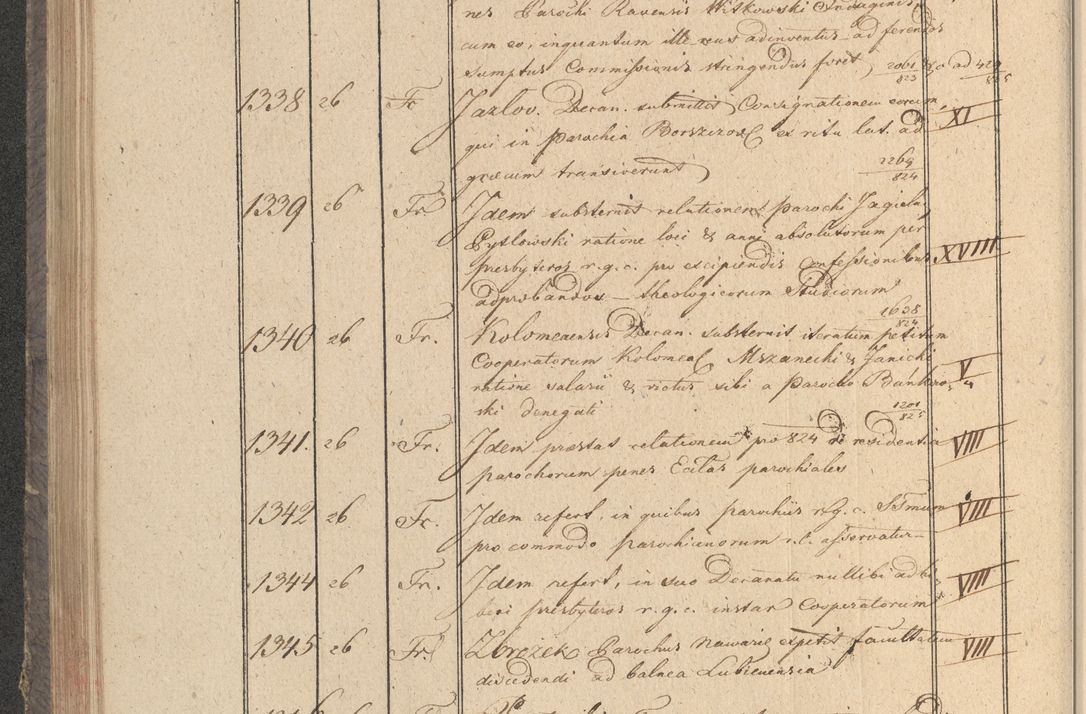 nes Parochi Ravensis Witkowski Indaginis,
cum eo, inquantum ille reus adinventus ad ferendos
sumptus Commissionis stringendus foret 2061/823 & ad 429/825
1338 26 Fr. Jazlov. Decan. submittit Consignationem eorum, XI
qui in parochia Borszczow ex ritu lat. ad
græcum transiverunt 2269/824
1339 26 Fr. Idem substernit relationem parochi Jagieln.
Pytlowski ratione loci & anni absolutorum per
presbyteros r.g.c. pro excipiendis confessionibus XVIII
adprobandos theologicorum Studiorum
1638/824
1340 26 Fr. Kolomeaensis Decan. substernit iteratum petitum
Cooperatorum Kolomeae Mszanecki & Janicki
ratione salarii & victus sibi a parocho Bańkow= V
ski denegati 1201/825
1341. 26 Fr. Idem præstat relationem pro 824 de residentia VIII
parochorum penes Ecclas parochiales
1342 26 Fr. Idem refert, in quibus parochiis r.g.c. SSmum VIII
pro commodo parochianorum r.l. asservatur
1344 26 Fr. Idem refert, in suo Decanatu nullibi adhi= VIII
beri presbyteros r.g.c. instar Cooperatorum
1345 26 Fr. Zbrożek Parochus Nawariæ expetit facultatem VIII
discedendi ad balnea Lubienensia